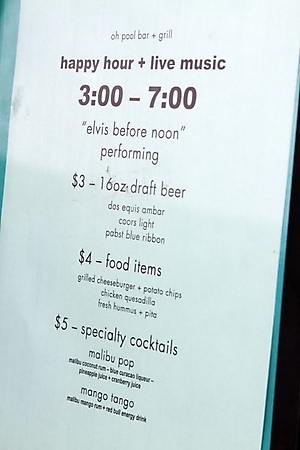 oh pool bar + grill
happy hour + live music
3:00 – 7:00
"elvis before noon"
performing
$3 – 16oz draft beer
dos equis ambar
coors light
pabst blue ribbon
$4 – food items
grilled cheeseburger + potato chips
chicken quesadilla
fresh hummus + pita
$5 – specialty cocktails
malibu pop
malibu coconut rum – blue curacao liqueur –
pineapple juice + cranberry juice
mango tango
malibu mango rum + red bull energy drink